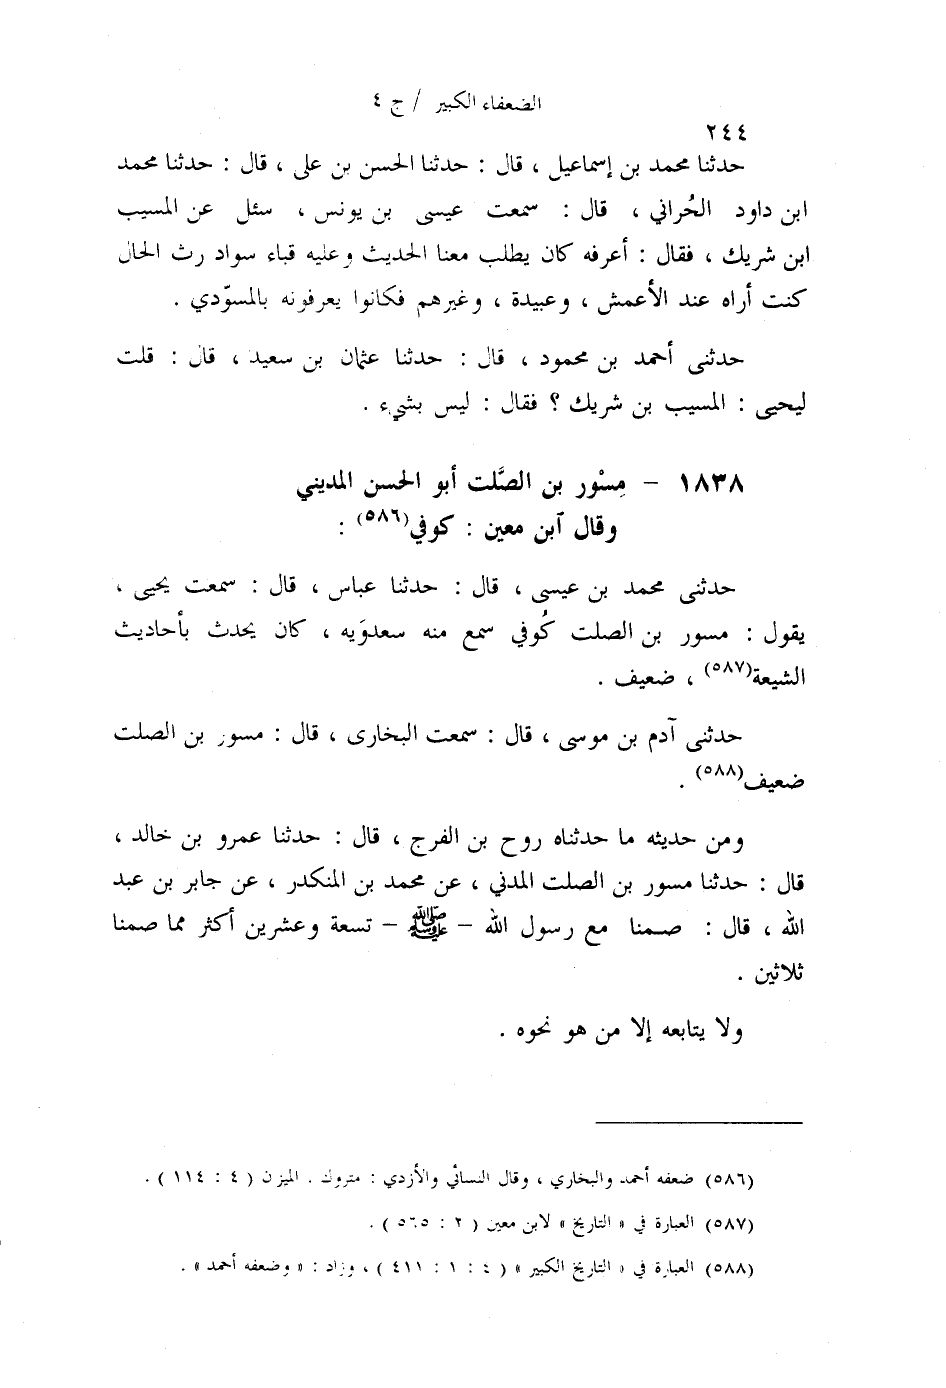 الضعفاء الكبير / ج ٤
٢٤٤
حدثنا محمد بن إسماعيل ، قال : حدثنا الحسن بن على ، قال : حدثنا محمد
ابن داود الحُراني ، قال : سمعت عيسى بن يونس ، سئل عن المسيب
ابن شريك ، فقال : أعرفه كان يطلب معنا الحديث وعليه قباء سواد رث الحال
كنت أراه عند الأعمش ، وعبيدة ، وغيرهم فكانوا يعرفونه بالمسوّدي .
حدثنى أحمد بن محمود ، قال : حدثنا عثمان بن سعيد ، قال : قلت
ليحيى : المسيب بن شريك ؟ فقال : ليس بشيء .
١٨٣٨ – مِسْور بن الصَّلت أبو الحسن المديني
وقال آبن معين : كوفي(٥٨٦) :
حدثنى محمد بن عيسى ، قال : حدثنا عباس ، قال : سمعت يحيى ،
يقول : مسور بن الصلت كُوفي سمع منه سعدوَيه ، كان يحدث بأحاديث
الشيعة(٥٨٧) ، ضعيف .
حدثنى آدم بن موسى ، قال : سمعت البخارى ، قال : مسور بن الصلت
ضعيف(٥٨٨) .
ومن حديثه ما حدثناه روح بن الفرج ، قال : حدثنا عمرو بن خالد ،
قال : حدثنا مسور بن الصلت المدني ، عن محمد بن المنكدر ، عن جابر بن عبد
الله ، قال : صمنا مع رسول الله – ﷺ – تسعة وعشرين أكثر مما صمنا
ثلاثين .
ولا يتابعه إلا من هو نحوه .
(٥٨٦) ضعفه أحمد والبخاري ، وقال النسائي والأزدي : متروك . الميزن ( ٤ : ١١٤ ) .
(٥٨٧) العبارة في « التاريخ » لابن معين ( ٢ : ٥٦٥ ) .
(٥٨٨) العبارة في « التاريخ الكبير » ( ٤ : ١ : ٤١١ ) ، وزاد : « وضعفه أحمد » .